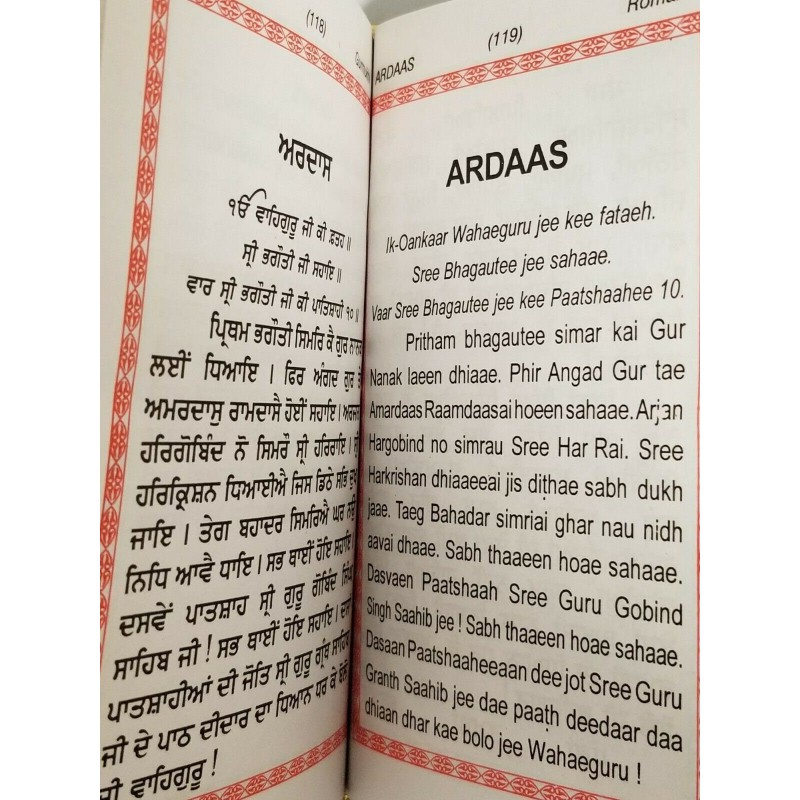 (118)
ਅਰਦਾਸ
ੴ ਵਾਹਿਗੁਰੂ ਜੀ ਕੀ ਫ਼ਤਹ ॥
ਸ੍ਰੀ ਭਗੌਤੀ ਜੀ ਸਹਾਇ ॥
ਵਾਰ ਸ੍ਰੀ ਭਗੌਤੀ ਜੀ ਕੀ ਪਾਤਿਸ਼ਾਹੀ ੧੦ ॥
ਪ੍ਰਿਥਮ ਭਗੌਤੀ ਸਿਮਰਿ ਕੈ ਗੁਰ ਨਾਨਕ
ਲਈਂ ਧਿਆਇ । ਫਿਰ ਅੰਗਦ ਗੁਰ
ਅਮਰਦਾਸੁ ਰਾਮਦਾਸੈ ਹੋਈਂ ਸਹਾਇ । ਅਰਜਨ
ਹਰਿਗੋਬਿੰਦ ਨੋ ਸਿਮਰੌ ਸ੍ਰੀ ਹਰਿਰਾਇ ।
ਹਰਿਕ੍ਰਿਸ਼ਨ ਧਿਆਈਐ ਜਿਸ ਡਿਠੇ ਸਭਿ ਦੁਖ
ਜਾਇ । ਤੇਗ ਬਹਾਦਰ ਸਿਮਰਿਐ ਘਰ ਨਉ
ਨਿਧਿ ਆਵੈ ਧਾਇ । ਸਭ ਥਾਈਂ ਹੋਇ ਸਹਾਇ ।
ਦਸਵੇਂ ਪਾਤਸ਼ਾਹ ਸ੍ਰੀ ਗੁਰੂ ਗੋਬਿੰਦ ਸਿੰਘ
ਸਾਹਿਬ ਜੀ ! ਸਭ ਥਾਈਂ ਹੋਇ ਸਹਾਇ । ਦਸਾਂ
ਪਾਤਸ਼ਾਹੀਆਂ ਦੀ ਜੋਤਿ ਸ੍ਰੀ ਗੁਰੂ ਗ੍ਰੰਥ ਸਾਹਿਬ
ਜੀ ਦੇ ਪਾਠ ਦੀਦਾਰ ਦਾ ਧਿਆਨ ਧਰ ਕੇ ਬੋਲੋ
ਜੀ ਵਾਹਿਗੁਰੂ !
ARDAAS
(119)
ARDAAS
Ik-Oankaar Wahaeguru jee kee fataeh.
Sree Bhagautee jee sahaae.
Vaar Sree Bhagautee jee kee Paatshaahee 10.
Pritham bhagautee simar kai Gur
Nanak laeen dhiaae. Phir Angad Gur tae
Amardaas Raamdaasai hoeen sahaae. Arjan
Hargobind no simrau Sree Har Rai. Sree
Harkrishan dhiaaeeai jis diṭhae sabh dukh
jaae. Taeg Bahadar simriai ghar nau nidh
aavai dhaae. Sabh thaaeen hoae sahaae.
Dasvaen Paatshaah Sree Guru Gobind
Singh Saahib jee ! Sabh thaaeen hoae sahaae.
Dasaan Paatshaaheeaan dee jot Sree Guru
Granth Saahib jee dae paaṭh deedaar daa
dhiaan dhar kae bolo jee Wahaeguru !